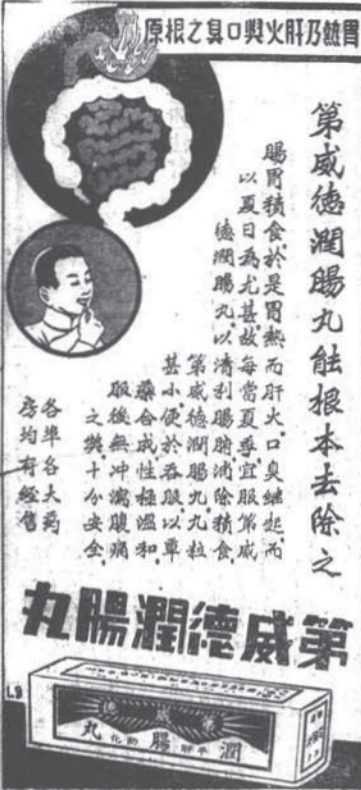 胃熱乃肝火與口臭之根原
第威德潤腸丸能根本去除之
腸胃積食，於是胃熱而肝火、口臭繼起，而
以夏日為尤甚，故每當夏季，宜服第威
德潤腸丸，以清利腸腑，消除積食，
第威德潤腸丸，丸粒
甚小，便於吞服，以草
藥合成，性極溫和，
服後無沖瀉腹痛
之弊，十分安全，
各埠各大药
房均有經售
第威德潤腸丸
L.B
第威德
潤平肝腸助化丸